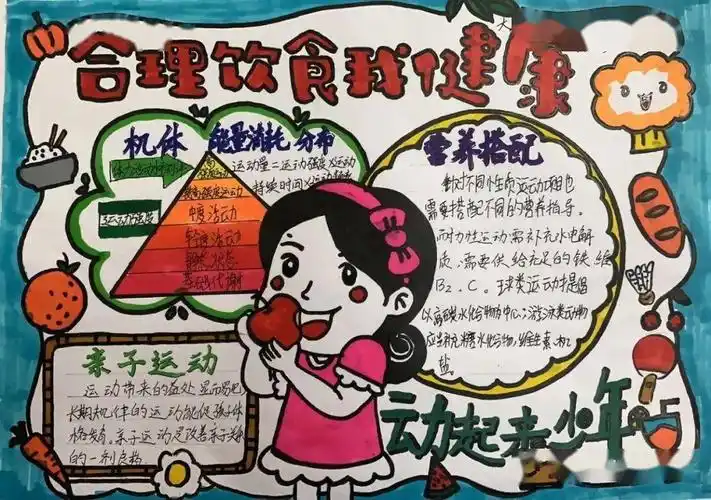 合理饮食我健康
机体 能量消耗 分布
运动量=运动强度×运动
持续时间×运动
中度活动
轻度活动
静息状态
基础代谢
营养搭配
针对不同性质运动项也
需要搭配不同的营养指导。
耐力性运动需补充水电解
质,需要供给充足的铁,维
B₂、C。球类运动提倡
以高碳水化合物为中心;游泳类动物
应当补糖水化合物,维生素,机
盐。
亲子运动
运动带来的益处显而易见
长期机体的运动能促孩子体
格发育,亲子运动是改善亲子关系
的一利良招
动起来少年